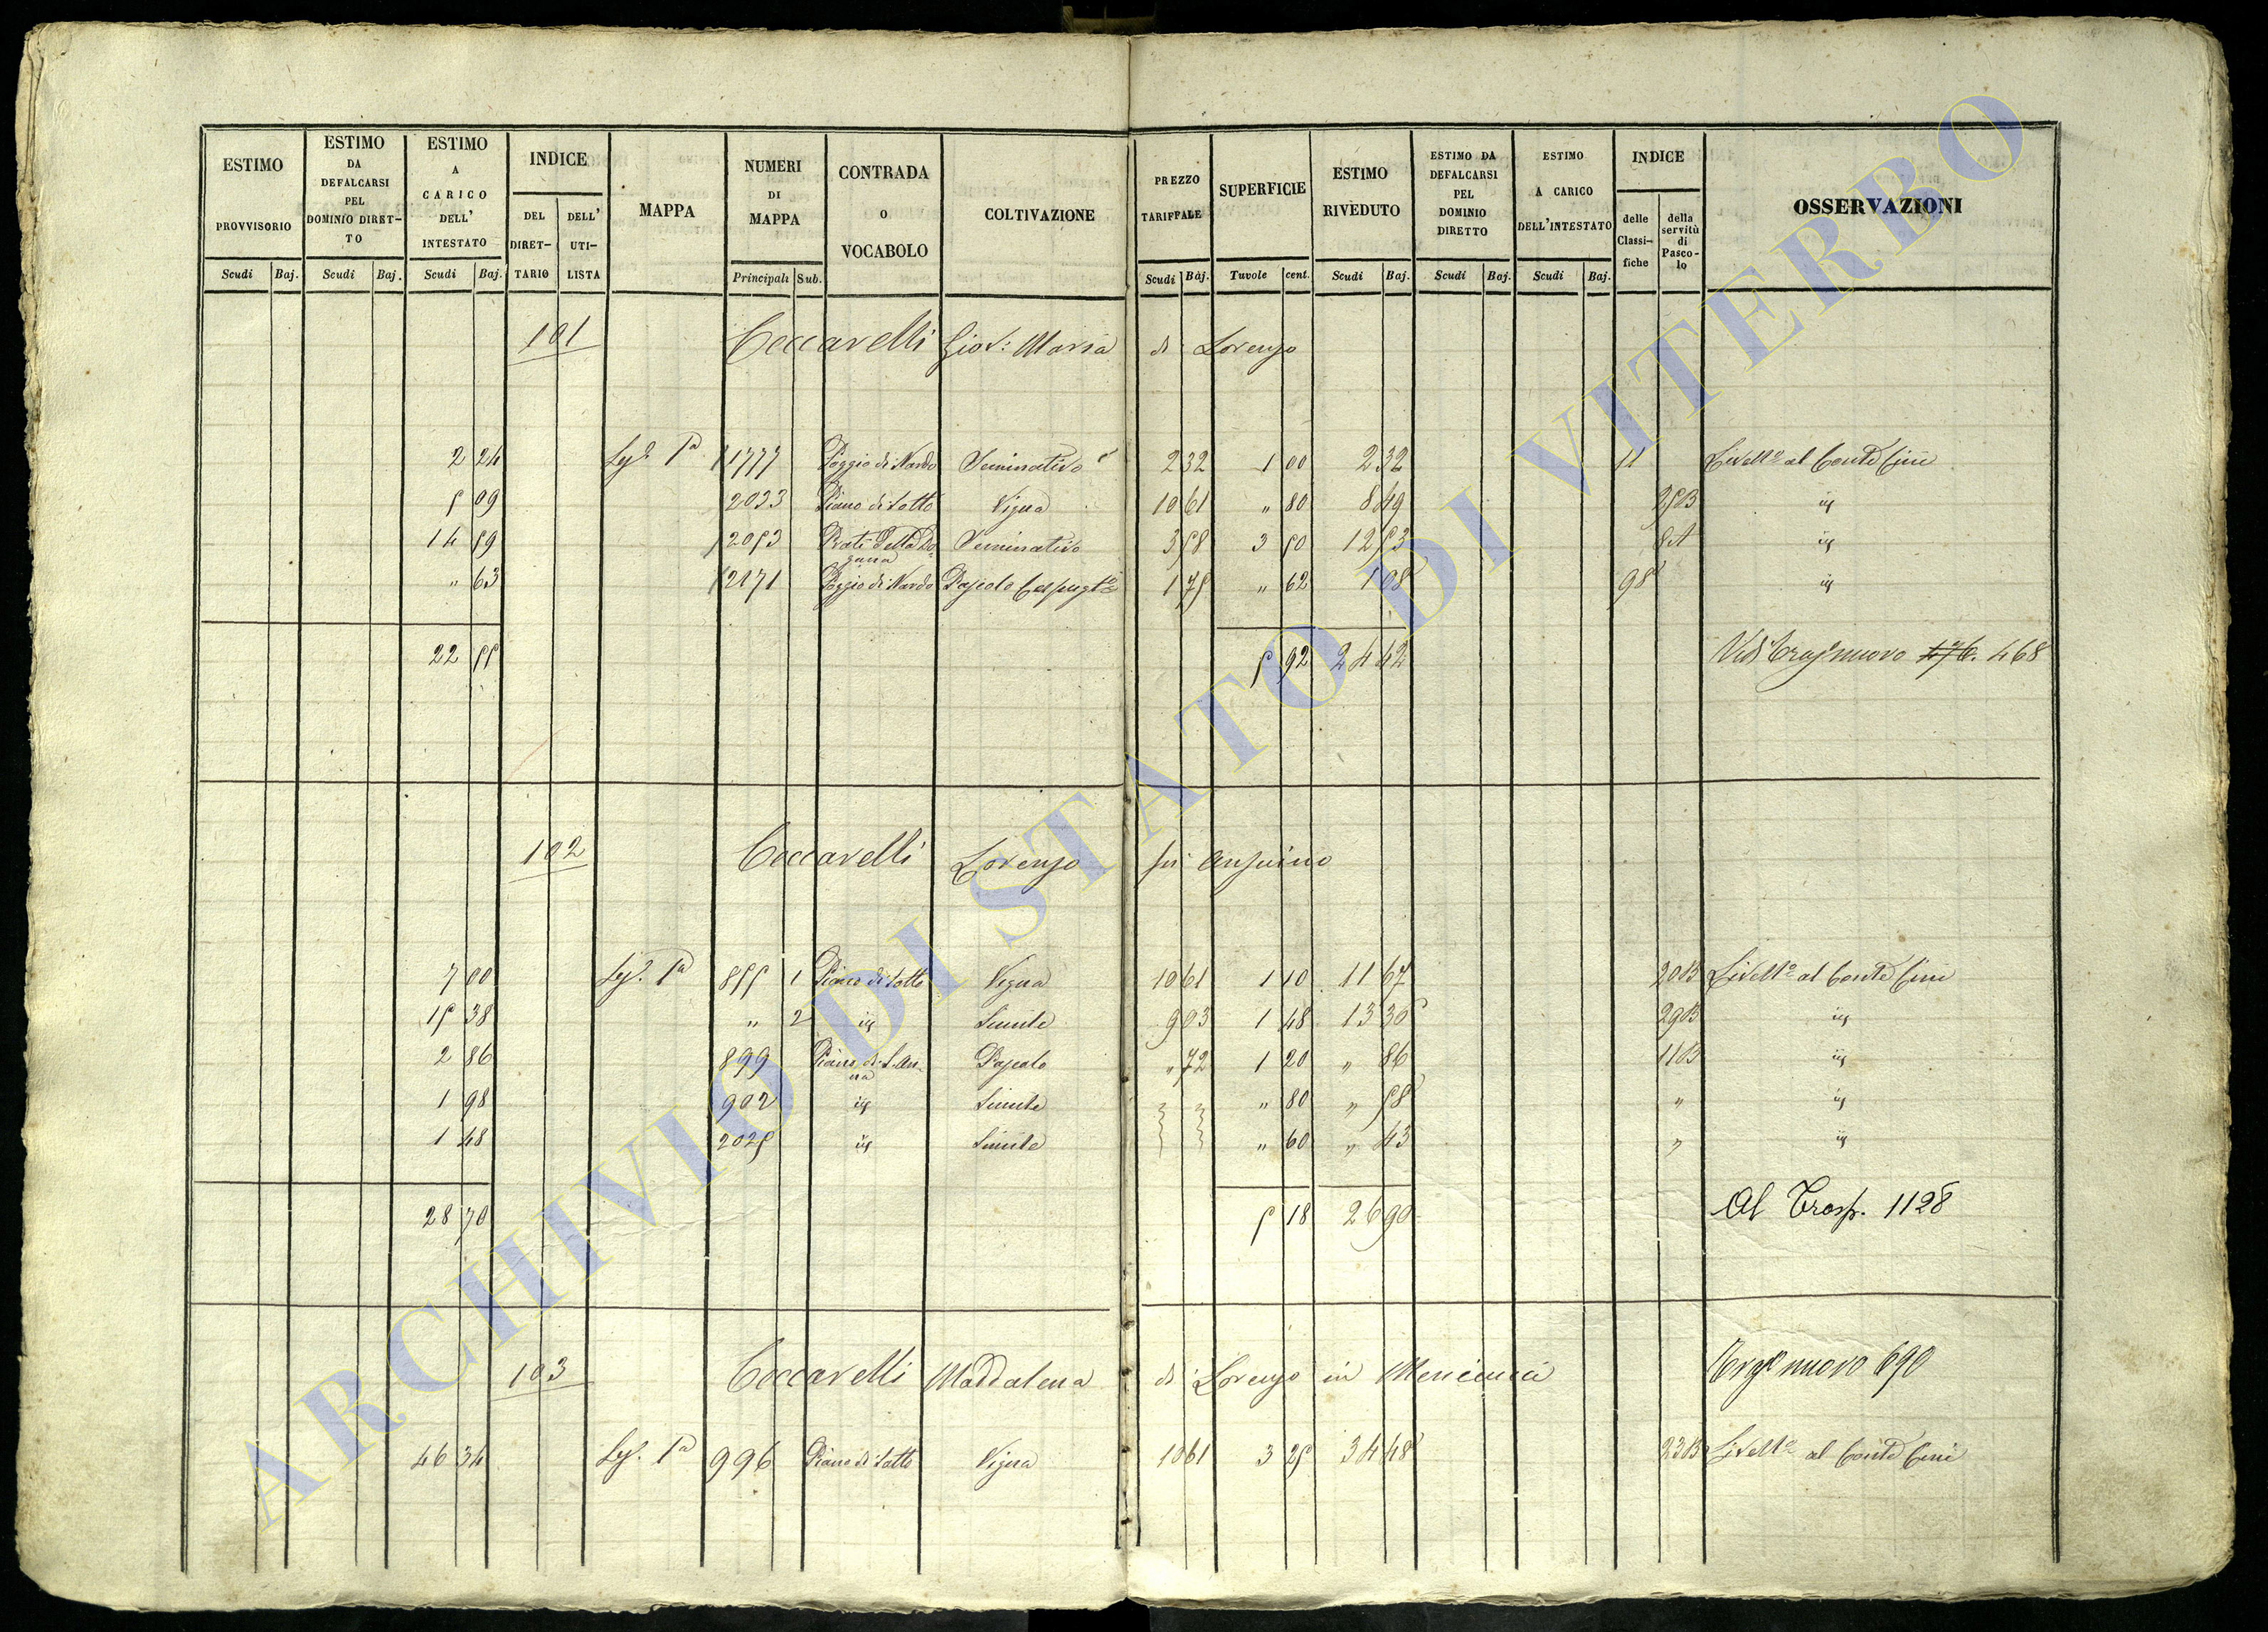 ESTIMO PROVVISORIO
ESTIMO DA DEFALCARSI PEL DOMINIO DIRET-TO
ESTIMO A CARICO DELL' INTESTATO
INDICE
DEL DIRET-TARIO
DELL' UTI-LISTA
MAPPA
NUMERI DI MAPPA
CONTRADA O VOCABOLO
COLTIVAZIONE
PREZZO TARIFFALE
SUPERFICIE
ESTIMO RIVEDUTO
ESTIMO DA DEFALCARSI PEL DOMINIO DIRETTO
ESTIMO A CARICO DELL'INTESTATO
INDICE
delle Classi-fiche
della servitù di Pasco-lo
OSSERVAZIONI
Scudi Baj. Scudi Baj. Scudi Baj. Principali Sub. Scudi Baj. Tavole cent. Scudi Baj. Scudi Baj. Scudi Baj.
101 Ceccarelli Giov: Maria di Lorenzo
2 24 1777 Poggio di Nardo Seminativo 2 32 1 00 2 32 11 Livello al Conte Cini
5 09 2033 Piano di Sotto Vigna 10 61 " 80 8 49 25B
14 59 2053 Prati della Do-gana Seminativo 3 58 3 50 12 53 8A
" 63 2171 Poggio di Nardo Pascolo Cespugto 1 75 " 62 1 08 98
22 55 5 92 24 42 nuovo 476. 468
102 Ceccarelli Lorenzo fu Ansuino
7 00 855 1 Piano di Sotto Vigna 10 61 1 10 11 67 20B Livello al Conte Cini
15 38 " 2 Simile 9 03 1 48 13 36 29B
2 86 899 Piano di S. An-na Pascolo " 72 1 20 " 86 11B
1 98 902 Simile " 80 " 58 "
1 48 2025 Simile " 60 " 43 "
28 70 5 18 26 90 Al Trasp. 1128
103 Ceccarelli Maddalena di Lorenzo in Mencucci nuovo 690
46 34 996 Piano di Sotto Vigna 10 61 3 25 34 48 23B Livello al Conte Cini
ARCHIVIO DI STATO DI VITERBO